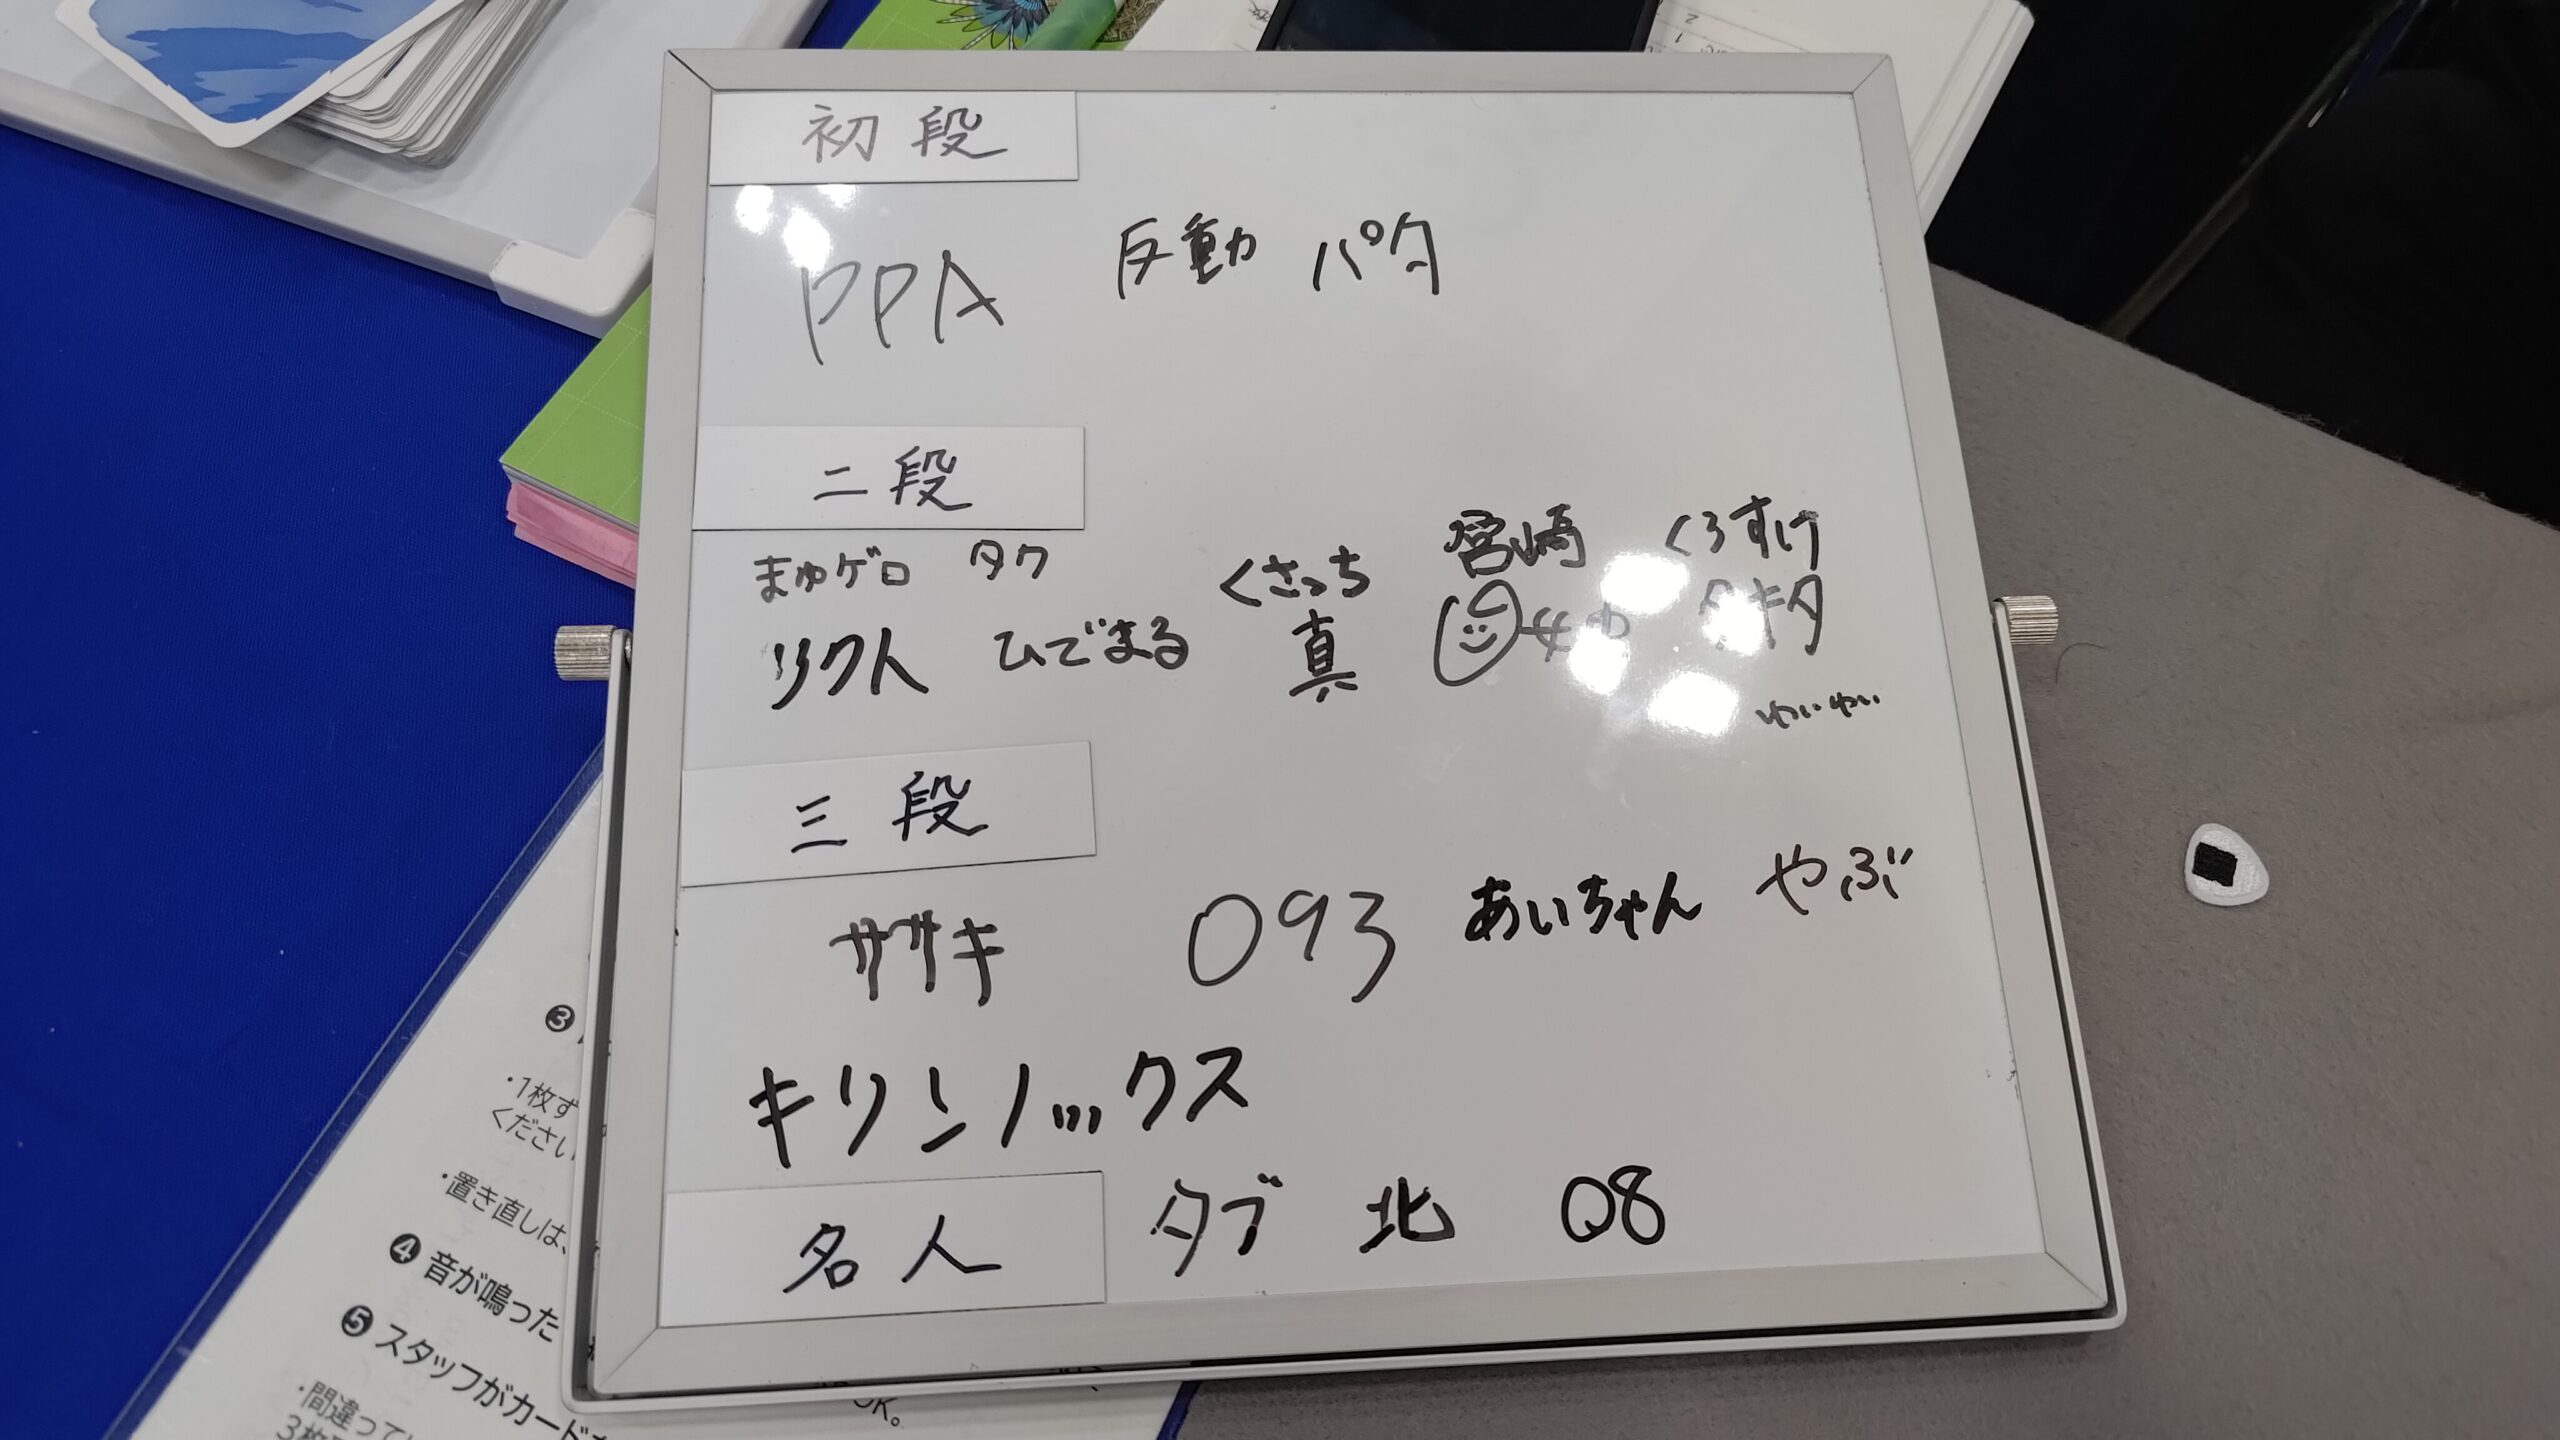 初段
PPA 反動 パタ
二段
まゆゲロ タク くさっち 宮崎 くろすけ
リク人 ひでまる 真 タキタ
わいわい
三段
ササキ 093 あいちゃん やぶ
キリンノックス
名人 タブ 北 08
❸
・1枚ず
ください
・置き直しは、
❹ 音が鳴った
❺ スタッフがカードを
・間違って
3枚
OK。